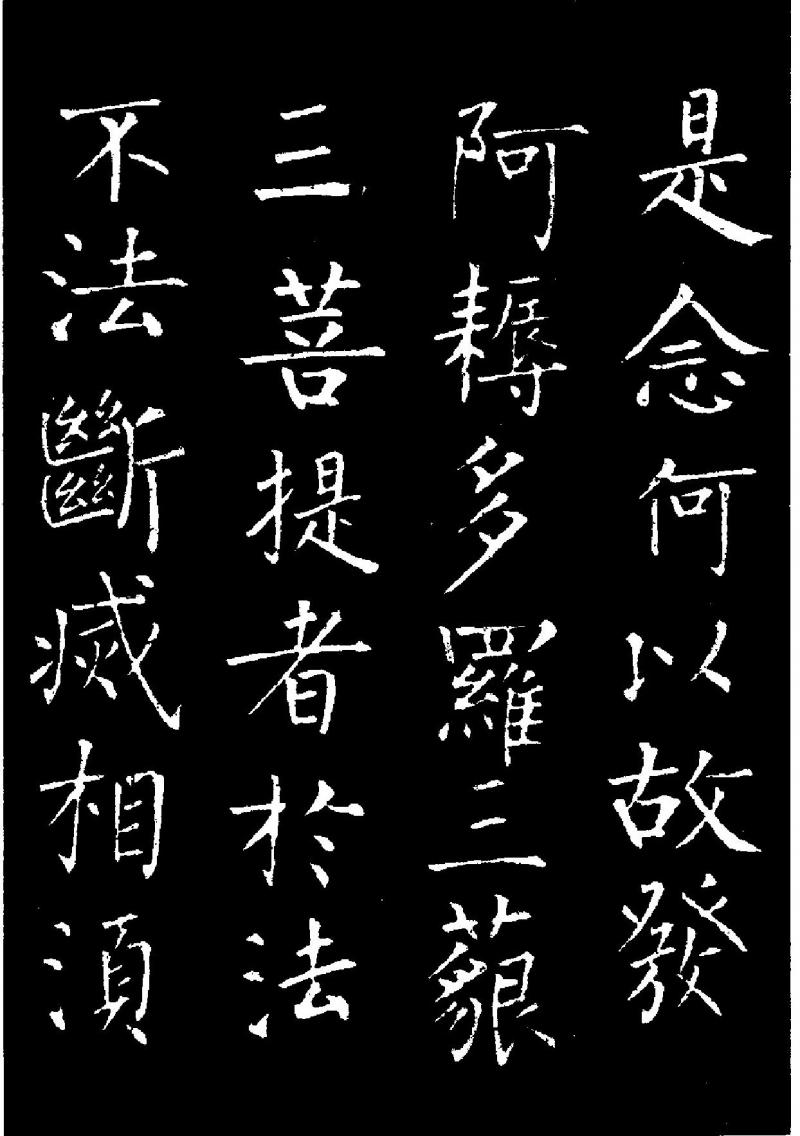 是念何以故發
阿耨多羅三藐
三菩提者於法
不法斷滅相湏